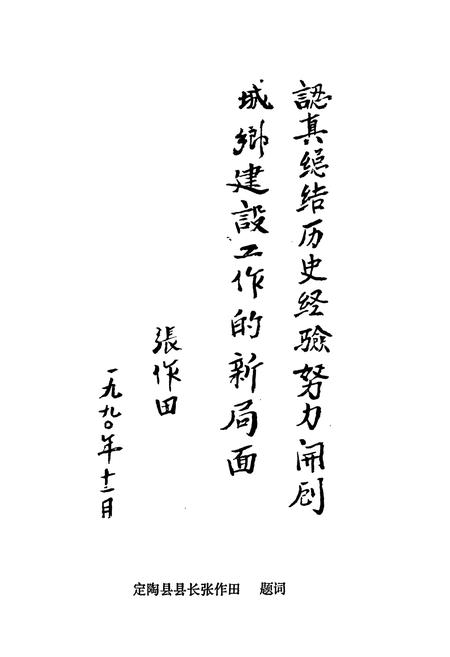 認真總结历史经驗努力開创
城鄉建設工作的新局面
張作田
一九九〇年十二月
定陶县县长张作田 题词